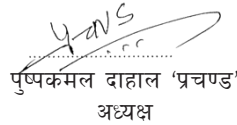 पुष्पकमल दाहाल ‘प्रचण्ड’
अध्यक्ष